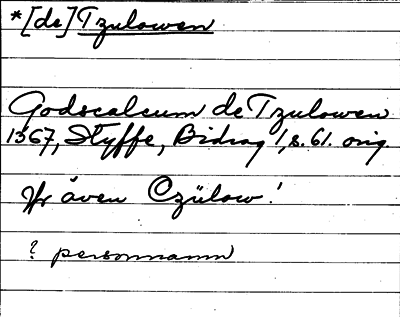 *[de] Tzulowen
Godscalcum de Tzulowen
1367, Styffe, Bidrag 1, s. 61. orig.
Jfr även Czülow!
? personnamn